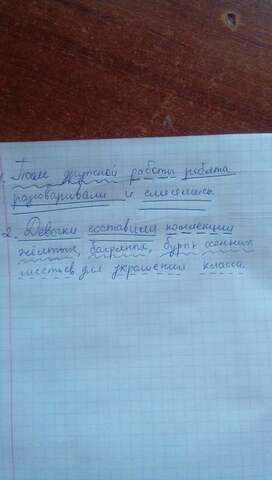 1. После дружной работы ребята
разговаривали и смеялись.
2. Девочки составили коллекции
жёлтых, багряных, бурых осенних
листьев для украшения класса.